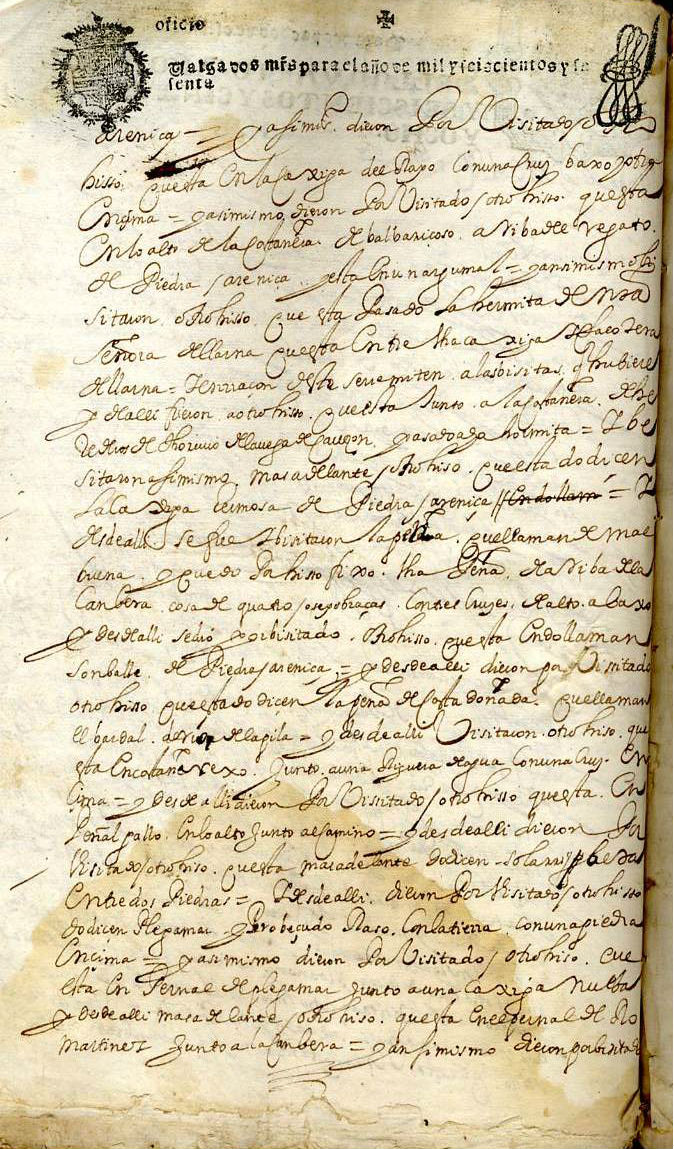 oficio
Valga dos mrs para el año de mil y seiscientos y se
senta
arenica = y asimis. dieron Por Visitado
hisso questa En la ca xiga del Rayo Con una Cruz baxo y otra
Ençima = y asimismo dieron Por Visitado otro hisso questa
En lo alto de la Costanera de balbaricoso a Riba de Vegato
de Piedra sarenica y esta En un argumal = y ansimismo bi
sitaron otro hisso que esta Pasado la hermita de nra
señora de llaina questa Entre tha ca xiga
de llaina = se remiten a las bisitas q hubiere
y de alli fueron a otro hisso questa Junto a la Costanera de he
Redros de de la vega de y pasado = I be
sitaron assimismo mas adelante otro hisso questa do dicen
La Ca xiga de Piedra sarenica En dollam = I
desde alli se fue I bisitaron la peña que llaman de mal
bruna y quedo Por hisso fixo tha Peña de a Riba de la
Canbera cosa de quatro braças Con tres Cruzes de alto a baxo
y desde alli se dio por bisitado Otro hisso questa En do llaman
Sonballe de Piedra sarenica = y desde alli dieron por Visitado
otro hisso questa do dicen la peña de Costa doñada que llaman
El bardal de la pila = y desde alli Visitaron otro hiso que
esta En Junto a una Riguera de agua Con una Cruz En
çima = y desde alli dieron Por Visitado otro hisso questa En
Peñal gallo En lo alto Junto al Camino = y desde alli dieron Por
Visitado otro hisso questa mas adelante do dicen
Entre dos Piedras = I desde alli dieron Por Visitado otro hisso
do dicen Plegamar y Raso Con la tierra con una piedra
Encima = y asimismo dieron Por Visitado otro hiso que
esta En Pernal de plegamar Junto a una ca xiga
y desde alli mas adelante otro hiso questa En el pernal de Ro
Martinez Junto a la Canbera = y ansimismo dieron por bisitado